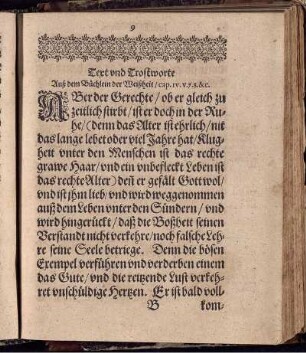 9
Text vnd Trostworte
Auß dem Büchlein der Weißheit / cap. iv. v. 7. 8. &c.
ABer der Gerechte / ob er gleich zu
zeitlich stirbt / ist er doch in der Ru-
he / (denn das Alter ist ehrlich / nit
das lange lebet oder viel Jahre hat / Klug-
heit vnter den Menschen ist das rechte
grawe Haar / vnd ein vnbefleckt Leben ist
das rechte Alter) deñ er gefällt Gott wol /
vnd ist jhm lieb / vnd wird weggenommen
auß dem Leben vnter den Sündern / vnd
wird hingerückt / daß die Boßheit seinen
Verstandt nicht verkehre / noch falsche Leh-
re seine Seele betriege. Denn die bösen
Exempel verführen vnd verderben einem
das Gute / vnd die reitzende Lust verkeh-
ret vnschuldige Hertzen. Er ist bald voll-
B kom-